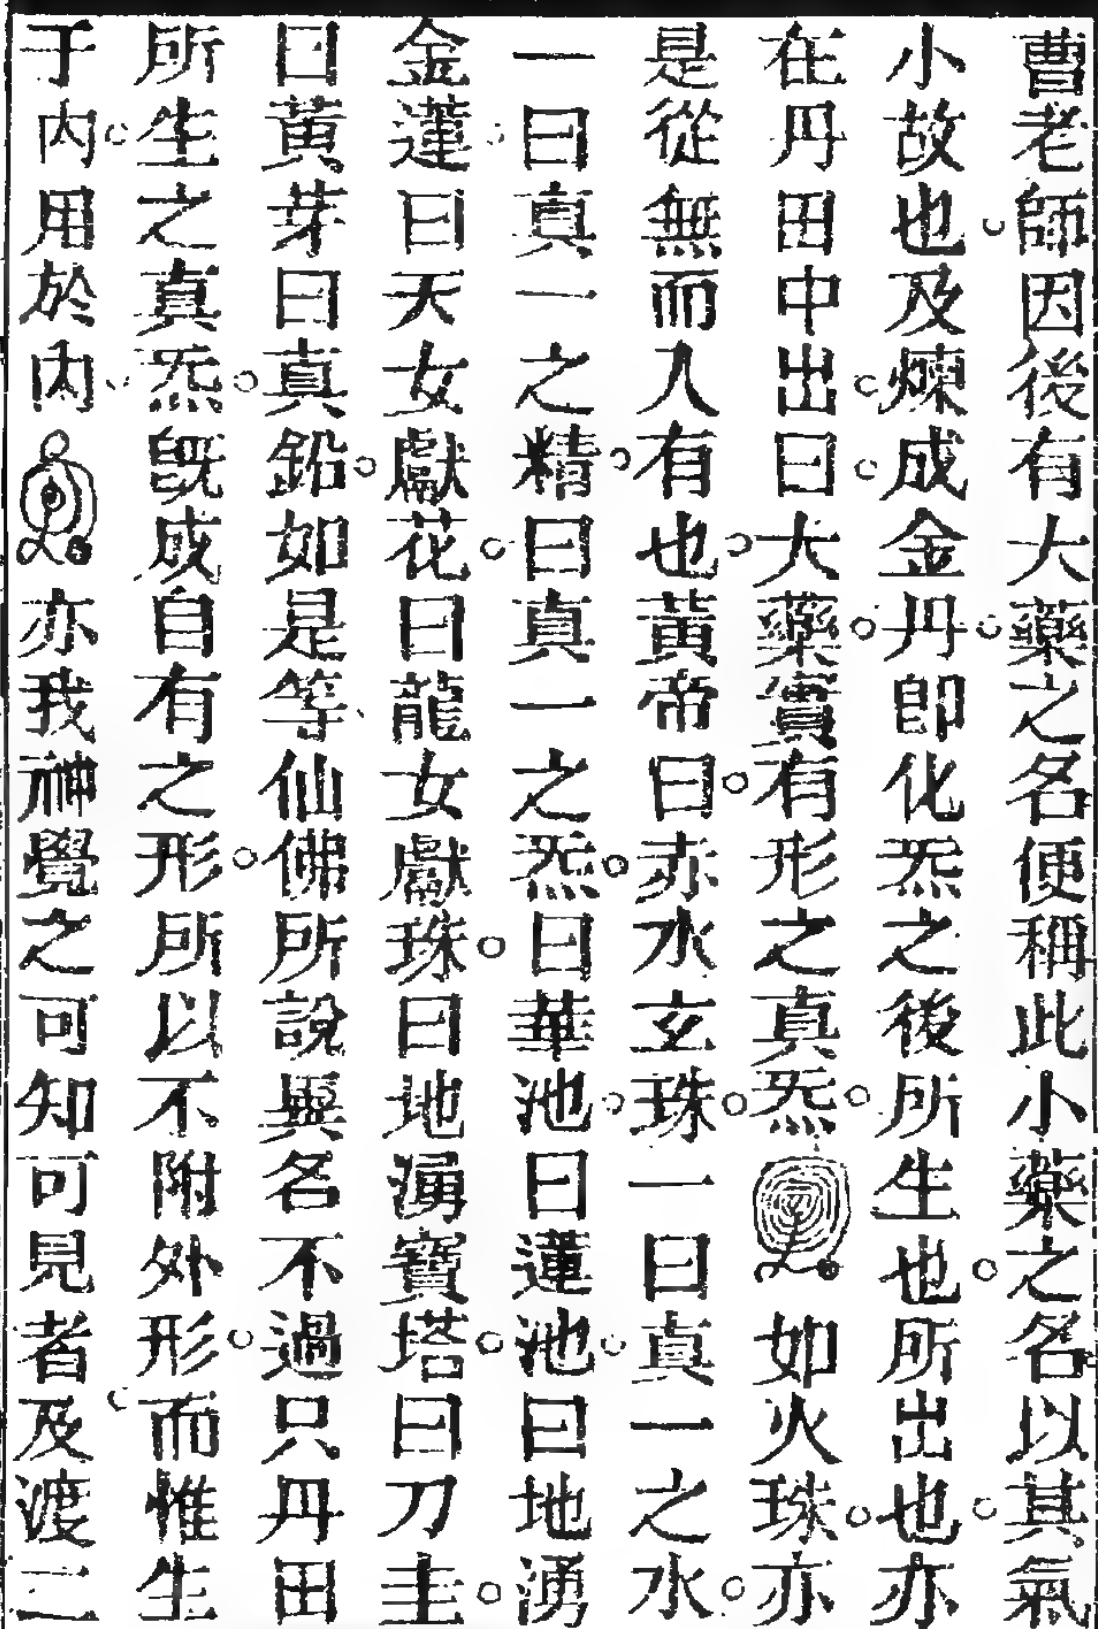 曹老師因後有大藥之名便稱此小藥之名以其氣
小故也及煉成金丹即化炁之後所生也所出也亦
在丹田中出曰大藥實有形之真炁如火珠亦
是從無而入有也黃帝曰赤水玄珠一曰真一之水
一曰真一之精曰真一之炁曰華池曰蓮池曰地湧
金蓮曰天女獻花曰龍女獻珠曰地湧寶塔曰刀圭
曰黃芽曰真鉛如是等仙佛所說異名不過只丹田
所生之真炁既成自有之形所以不附外形而惟生
于內用於內亦我神覺之可知可見者及渡二